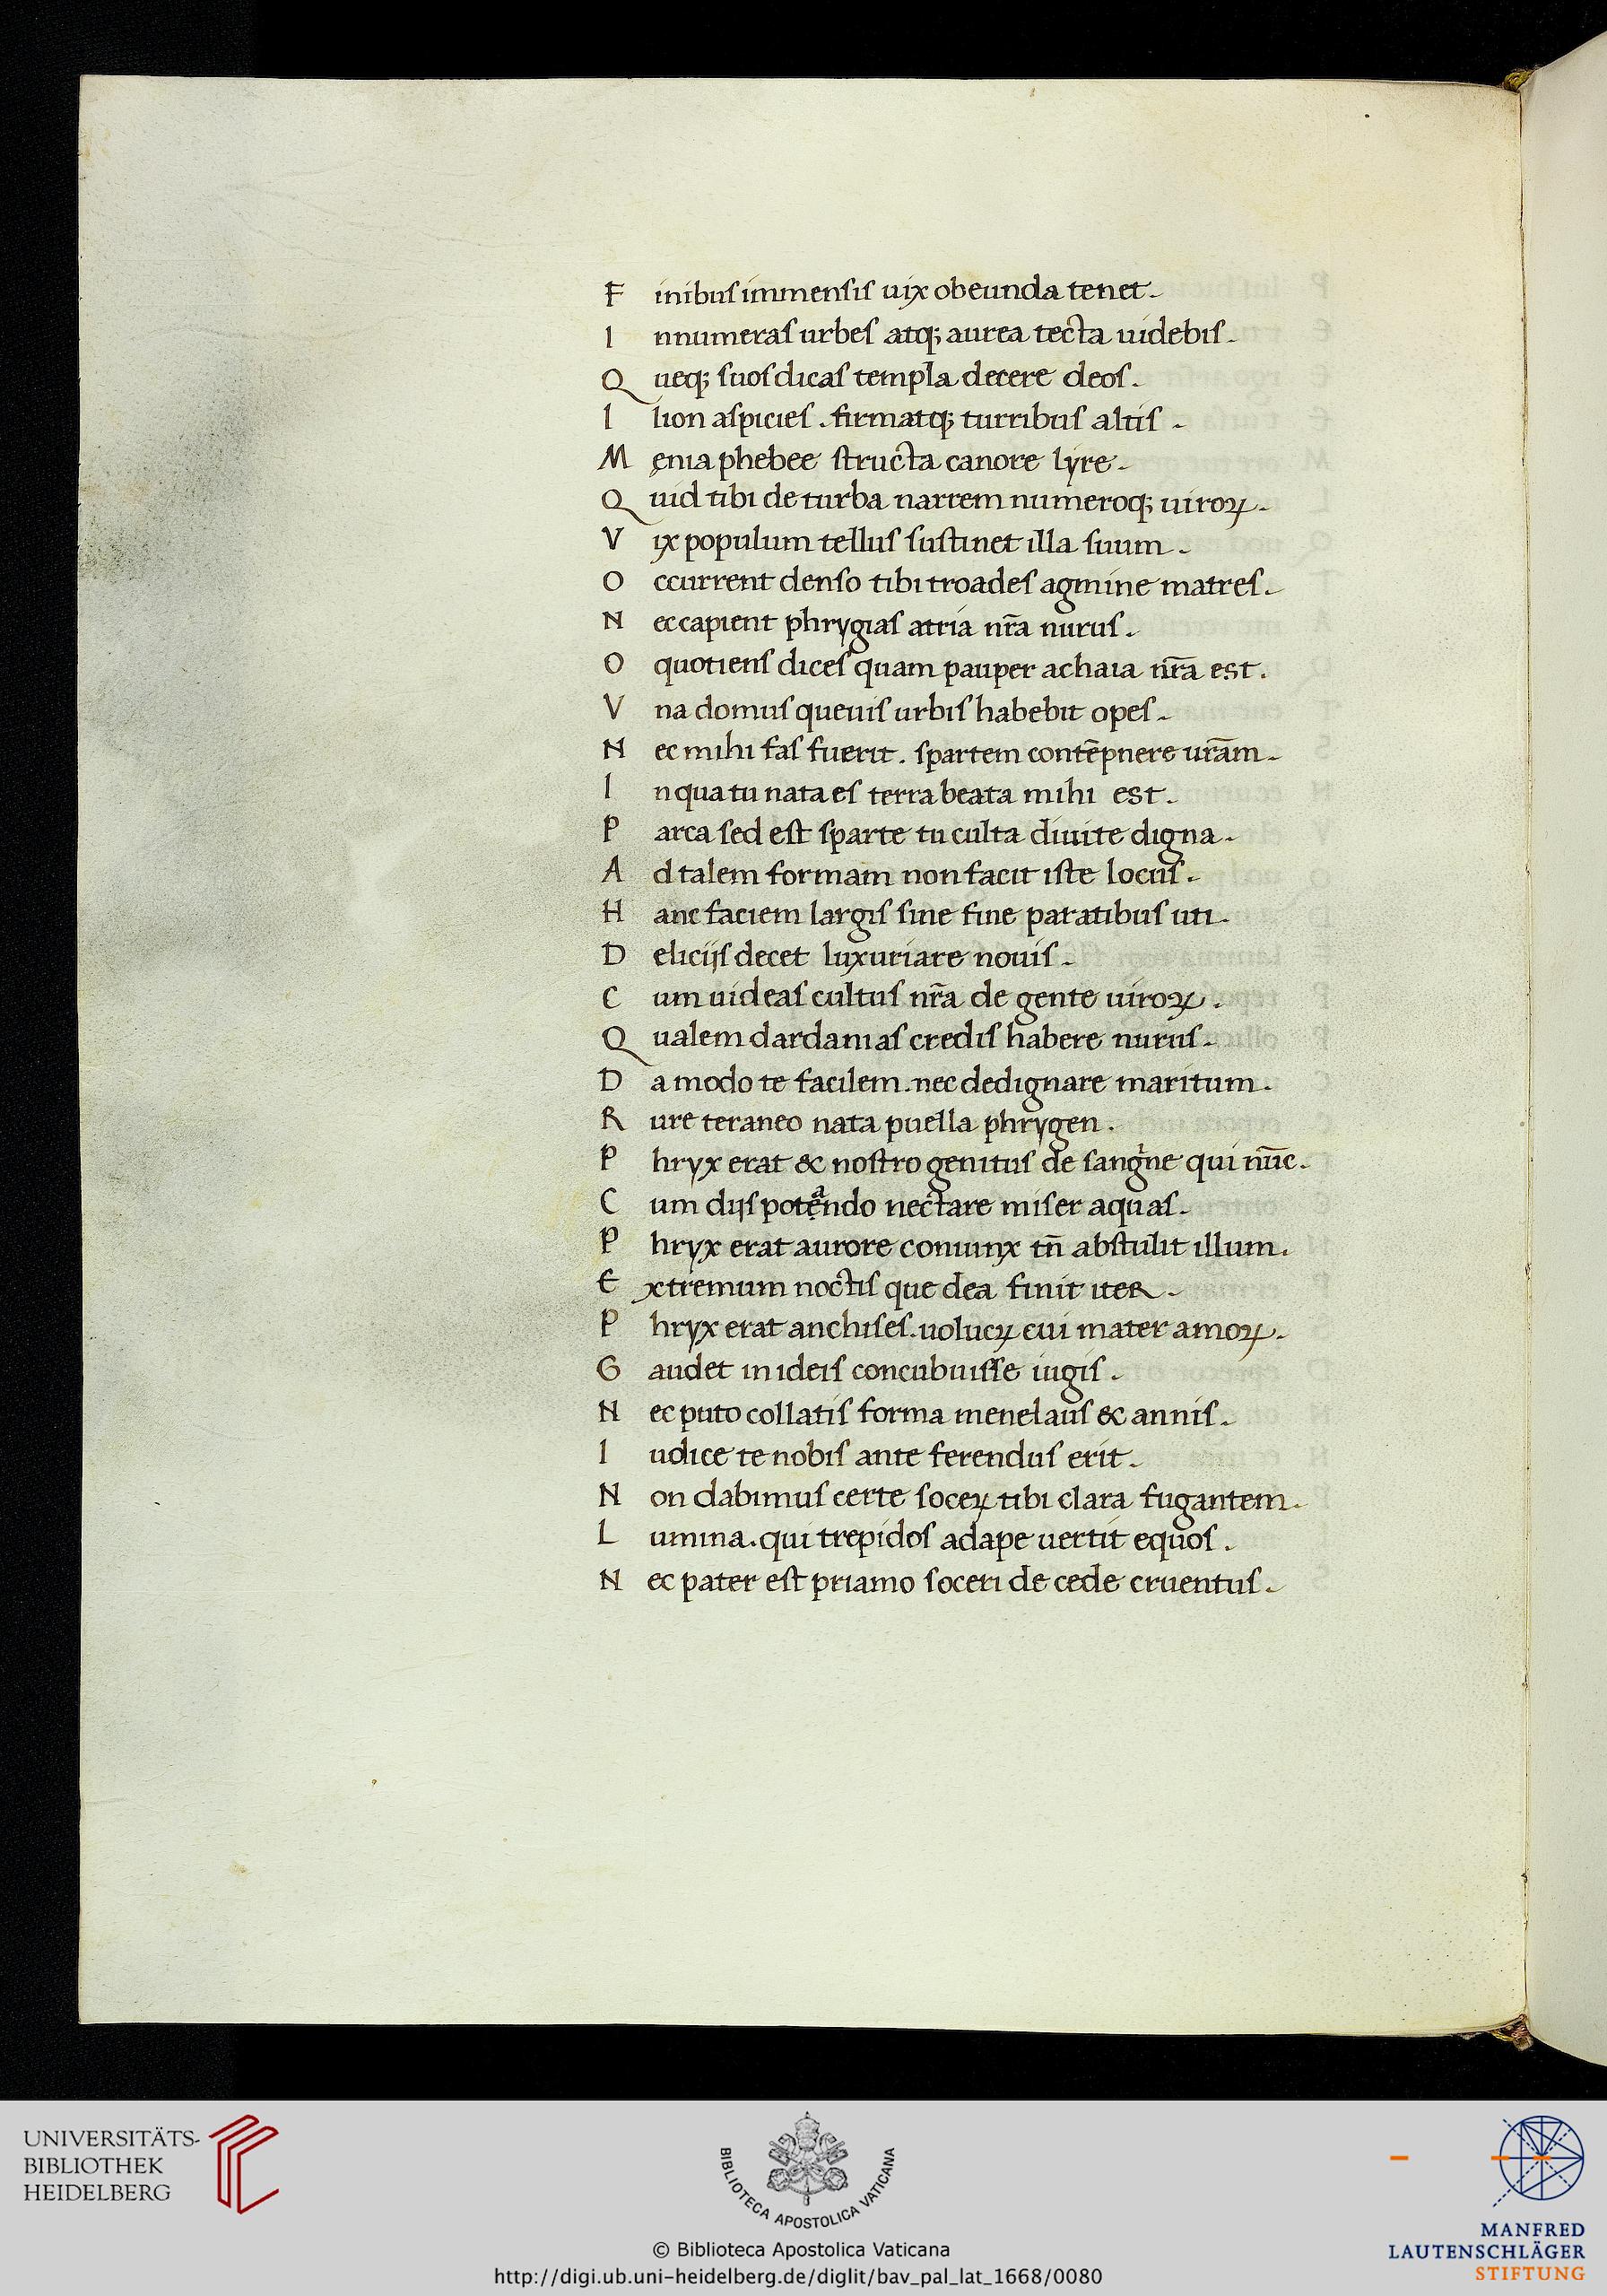 F inibuſ immenſiſ uix obeunda tenet.
I nnumeraſ urbeſ atq; aurea tecta uidebiſ.
Q ueq; ſuoſ dicaſ templa decere deoſ.
I lion aſpicieſ. firmatq; turribuſ altiſ.
M ęnia phebee ſtructa canore lyre.
Q uid tibi de turba narrem numeroq; uiroꝝ.
V ix populum telluſ ſuſtinet illa ſuum.
O ccurrent denſo tibi troadeſ agmine matreſ.
N ec capient phrygiaſ atria nr̄a nuruſ.
O quotienſ diceſ quam pauper achaia nr̄a est.
V na domuſ queuiſ urbiſ habebit opeſ.
N ec mihi faſ fuerit. ſpartem contēpnere ur̄am.
I n qua tu nata eſ terra beata mihi est.
P arca ſed eſt ſparte tu culta diuite digna.
A d talem formam non facit iſte locuſ.
H anc faciem largiſ ſine fine paratibuſ uti.
D elicijſ decet luxuriare nouiſ.
C um uideaſ cultuſ nr̄a de gente uiroꝝ.
Q ualem dardaniaſ crediſ habere nuruſ.
D a modo te facilem. nec dedignare maritum.
R ure teraneo nata puella phrygen.
P hryx erat & noſtro genituſ de ſangͥne qui nūc.
C um dijſ potẹᵃndo nectare miſer aquaſ.
P hryx erat aurore coniunx tn̄ abſtulit illum.
E xtremum noctiſ que dea finit iteR.
P hryx erat anchiſeſ. uolucꝝ cui mater amoꝝ.
G audet in ideiſ concubuiſſe iugiſ.
N ec puto collatiſ forma menelauſ & anniſ.
I udice te nobiſ ante ferenduſ erit.
N on dabimuſ certe ſoceꝝ tibi clara fugantem.
L umina. qui trepidoſ adape uertit equoſ.
N ec pater eſt priamo ſoceri de cede cruentuſ.
UNIVERSITÄTS-
BIBLIOTHEK
HEIDELBERG
BIBLIOTECA APOSTOLICA VATICANA
© Biblioteca Apostolica Vaticana
http://digi.ub.uni-heidelberg.de/diglit/bav_pal_lat_1668/0080
MANFRED
LAUTENSCHLÄGER
STIFTUNG